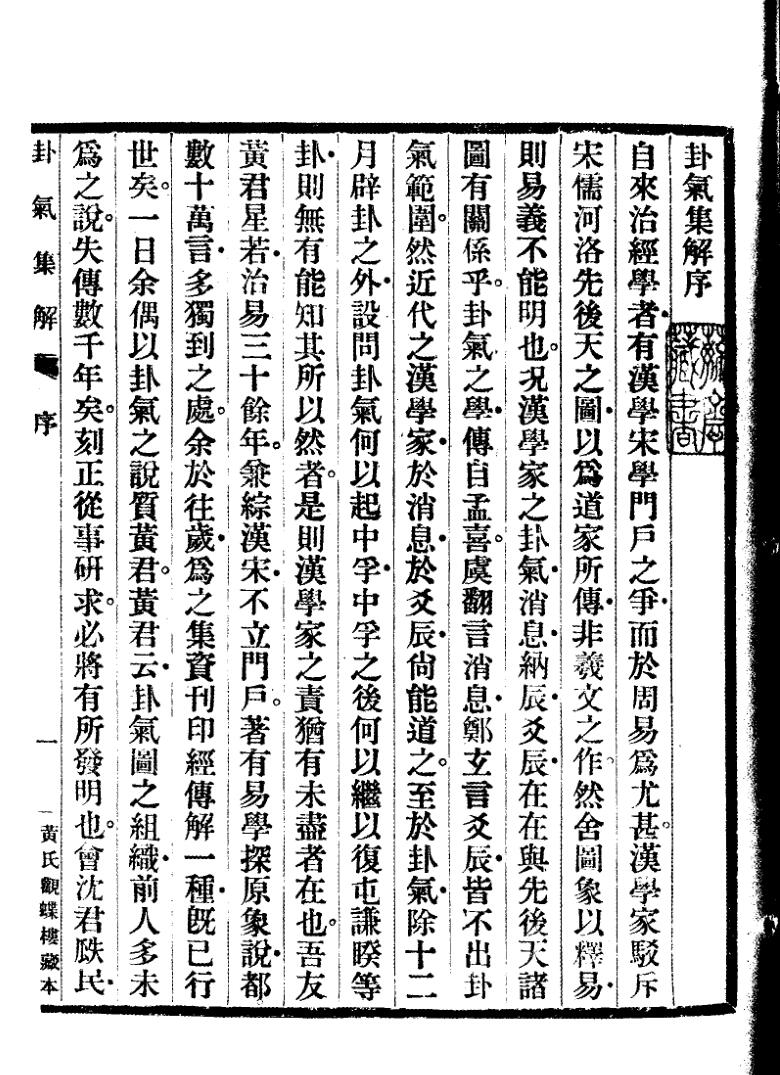 卦氣集解序
自來治經學者。有漢學宋學門戶之爭。而於周易爲尤甚。漢學家駁斥
宋儒河洛先後天之圖。以爲道家所傳。非羲文之作。然舍圖象以釋易。
則易義不能明也。況漢學家之卦氣消息。納辰爻辰。在在與先後天諸
圖有關係乎。卦氣之學。傳自孟喜。虞翻言消息。鄭玄言爻辰。皆不出卦
氣範圍。然近代之漢學家。於消息。於爻辰。尙能道之。至於卦氣。除十二
月辟卦之外。設問卦氣何以起中孚。中孚之後何以繼以復屯謙暌等
卦。則無有能知其所以然者。是則漢學家之責猶有未盡者在也。吾友
黃君星若。治易三十餘年。兼綜漢宋。不立門戶。著有易學探原象說。都
數十萬言。多獨到之處。余於往歲。爲之集資刊印經傳解一種。旣已行
世矣。一日余偶以卦氣之說質黃君。黃君云。卦氣圖之組織。前人多未
爲之說。失傳數千年矣。刻正從事研求。必將有所發明也。會沈君㬰民。
卦氣集解 序 一 黃氏觀蝶樓藏本